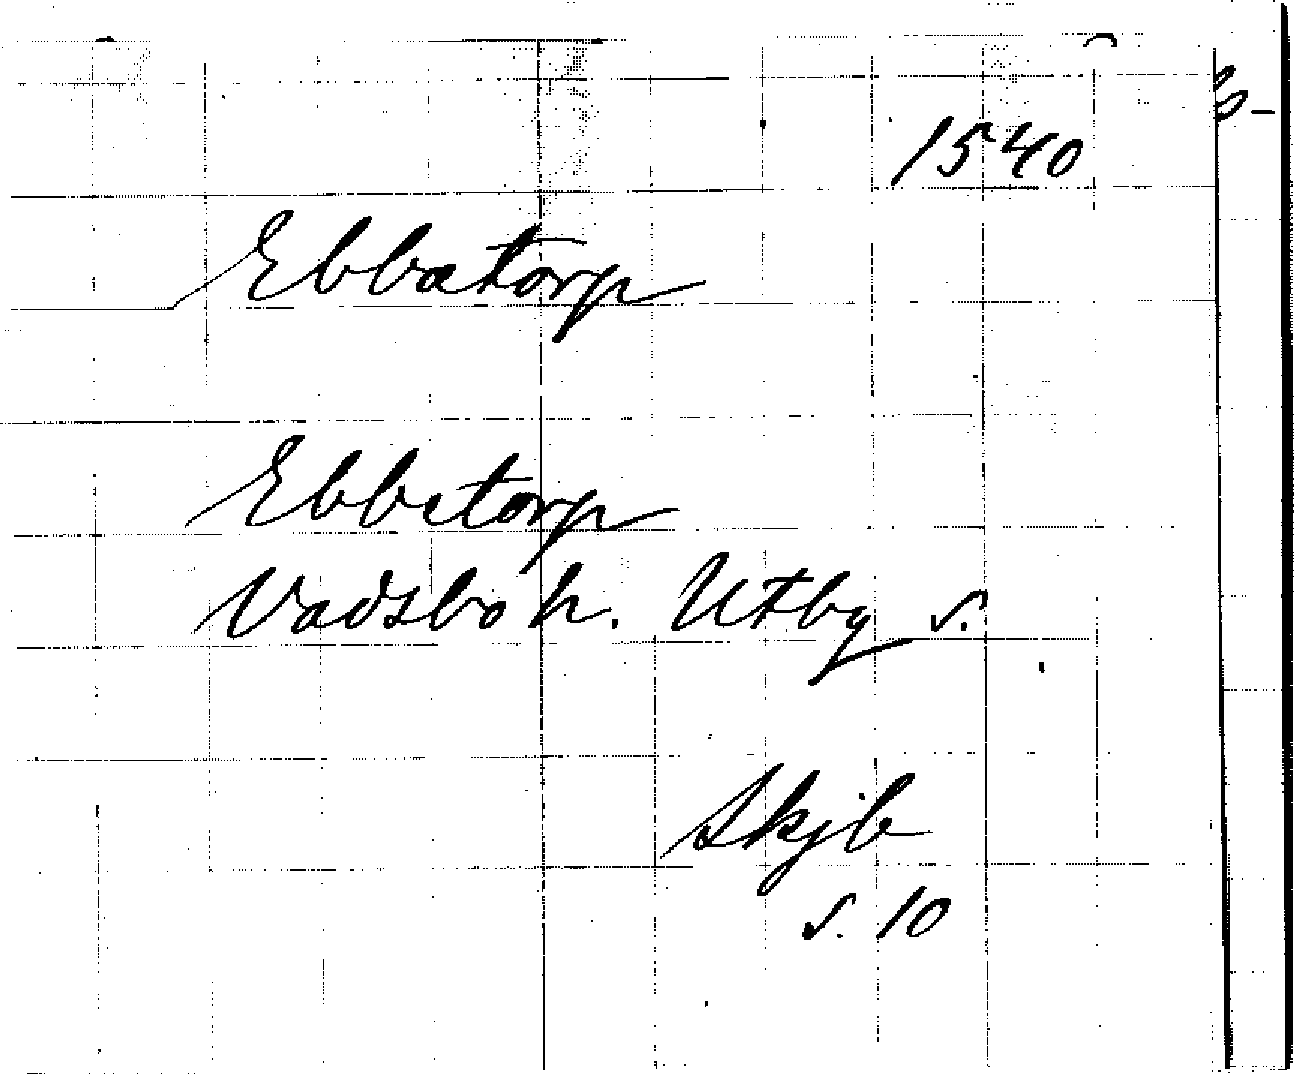 1540
Ebbatorp
Ebbetorp
Vadsbo h. Utby s.
Skjb
s. 10